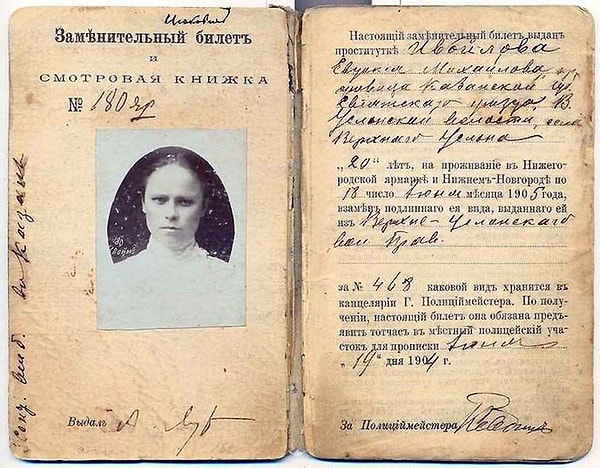 Замѣнительный билетъ
и
СМОТРОВАЯ КНИЖКА
№ 180 яр
Выдалъ А.
Настоящій замѣнительный билетъ выданъ
проституткѣ
Евдокія Михайлова
Казанской губ.
уѣзда, В.
Услонской волости, села
Верхняго Услона
„20" лѣтъ, на проживаніе въ Нижего-
родской ярмаркѣ и Нижнемъ-Новгородѣ по
18 число Іюня мѣсяца 1905 года,
взамѣнъ подлиннаго ея вида, выданнаго ей
изъ Верхне-Услонскаго
вол Прав.
за № 468 каковой видъ хранится въ
канцеляріи Г. Полиціймейстера. По полу-
ченіи, настоящій билетъ она обязана предъ-
явить тотчасъ въ мѣстный полицейскій уча-
стокъ для прописки Іюня
„19" дня 1904 г.
За Полиціймейстера